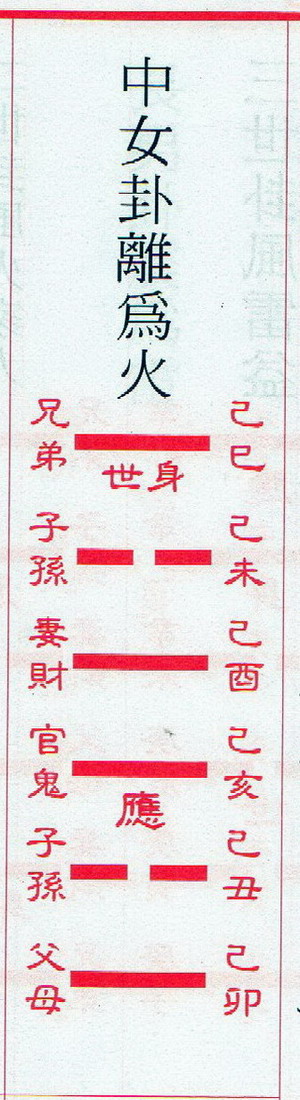 中女卦離爲火
兄弟 己巳
世身
子孫 己未
妻財 己酉
官鬼 己亥
應
子孫 己丑
父母 己卯